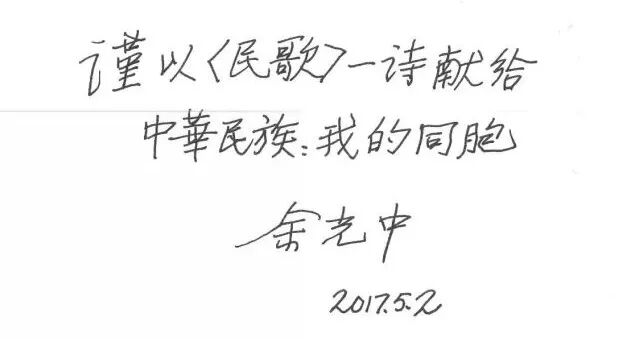 谨以〈民歌〉一诗献给
中華民族：我的同胞
余光中
2017.5.2